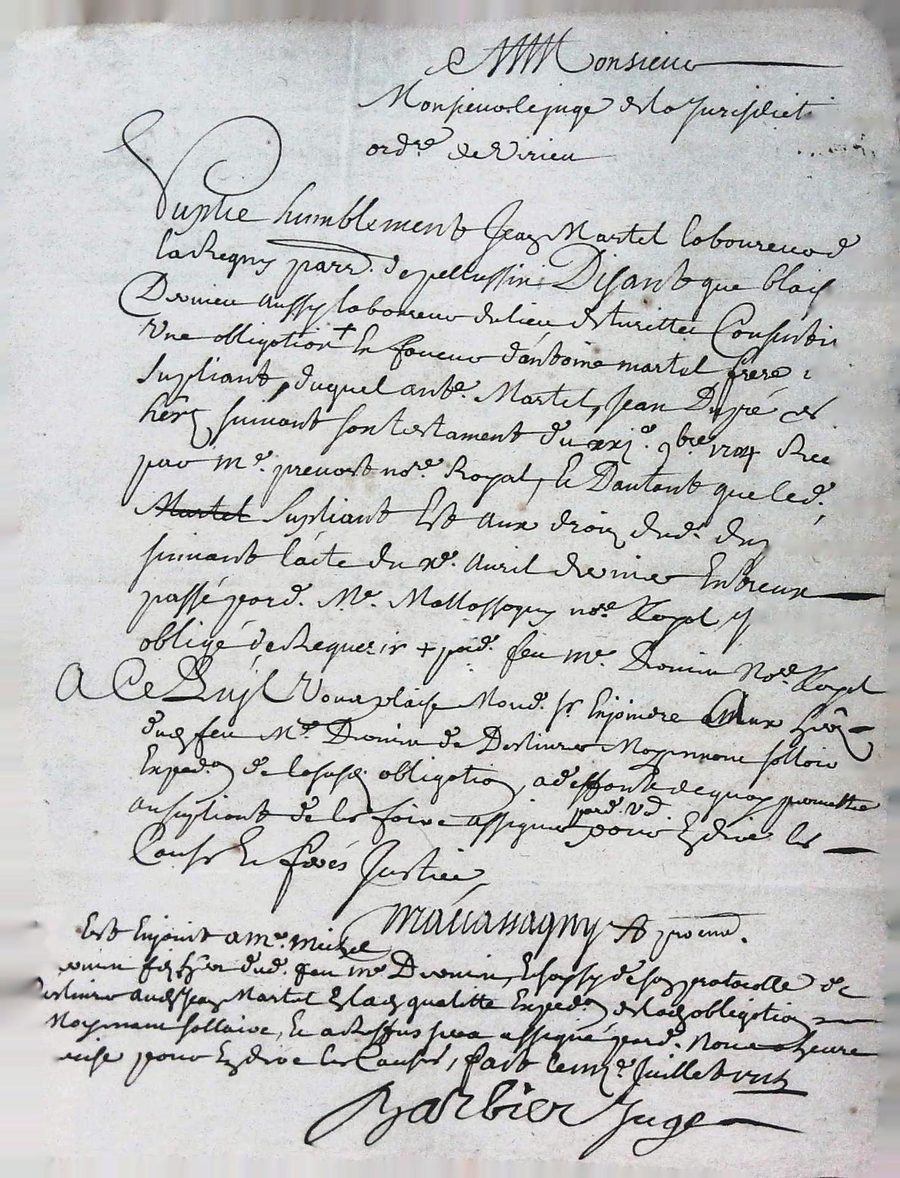 A Monsieur
Monsieur le juge de la Jurisdict
ordre de Virieu
Suplie humblement Jean Martel laboureur de
la Regny parr. de pellussin Disant que blais
Drevieu aussy laboureur du lieu de Consentit
Une obligation + En faveur d'antoine martel frere
Supliant, duquel ante. Martel, Jean Dupré est
hér suivant son testament du xxj.e 9bre 1704 Reçu
par me. prevost nore. Royal, Et Dautant que led.
Martel Supliant Est aux droiz dud. Dup
suivant lacte du xe. avril dernier En breux
passé pard. Me. Mallassagny nore. Royal Il
obligé de Requerir + par feu me. Dronin Nore. Royal
A Ce Quil Vous plaise Mond. Sr. Enjoindre aux hérs
dud. feu Me. Dronin de Deslivrer Moyennant sollaire
Exped.on de lasusd. obligation, a deffaut de quoy permettre
pard. Vo.
au supliant de les faire assigner pour En dire les
Causes Et ferés Justice
Mallassagny procur.
Est Enjoint a me. michel
Dronin fils hér dud. feu me. Dronin, Et saisy de son protocolle de
Deslivrer aud. Jean Martel En lad. qualitté Exped.on de lad. obligation
Moyennant sollaire, Et a Reffus sera assigné pard. Nous a heure
pour En dire les Causes, fait le Juillet
Barbier Juge